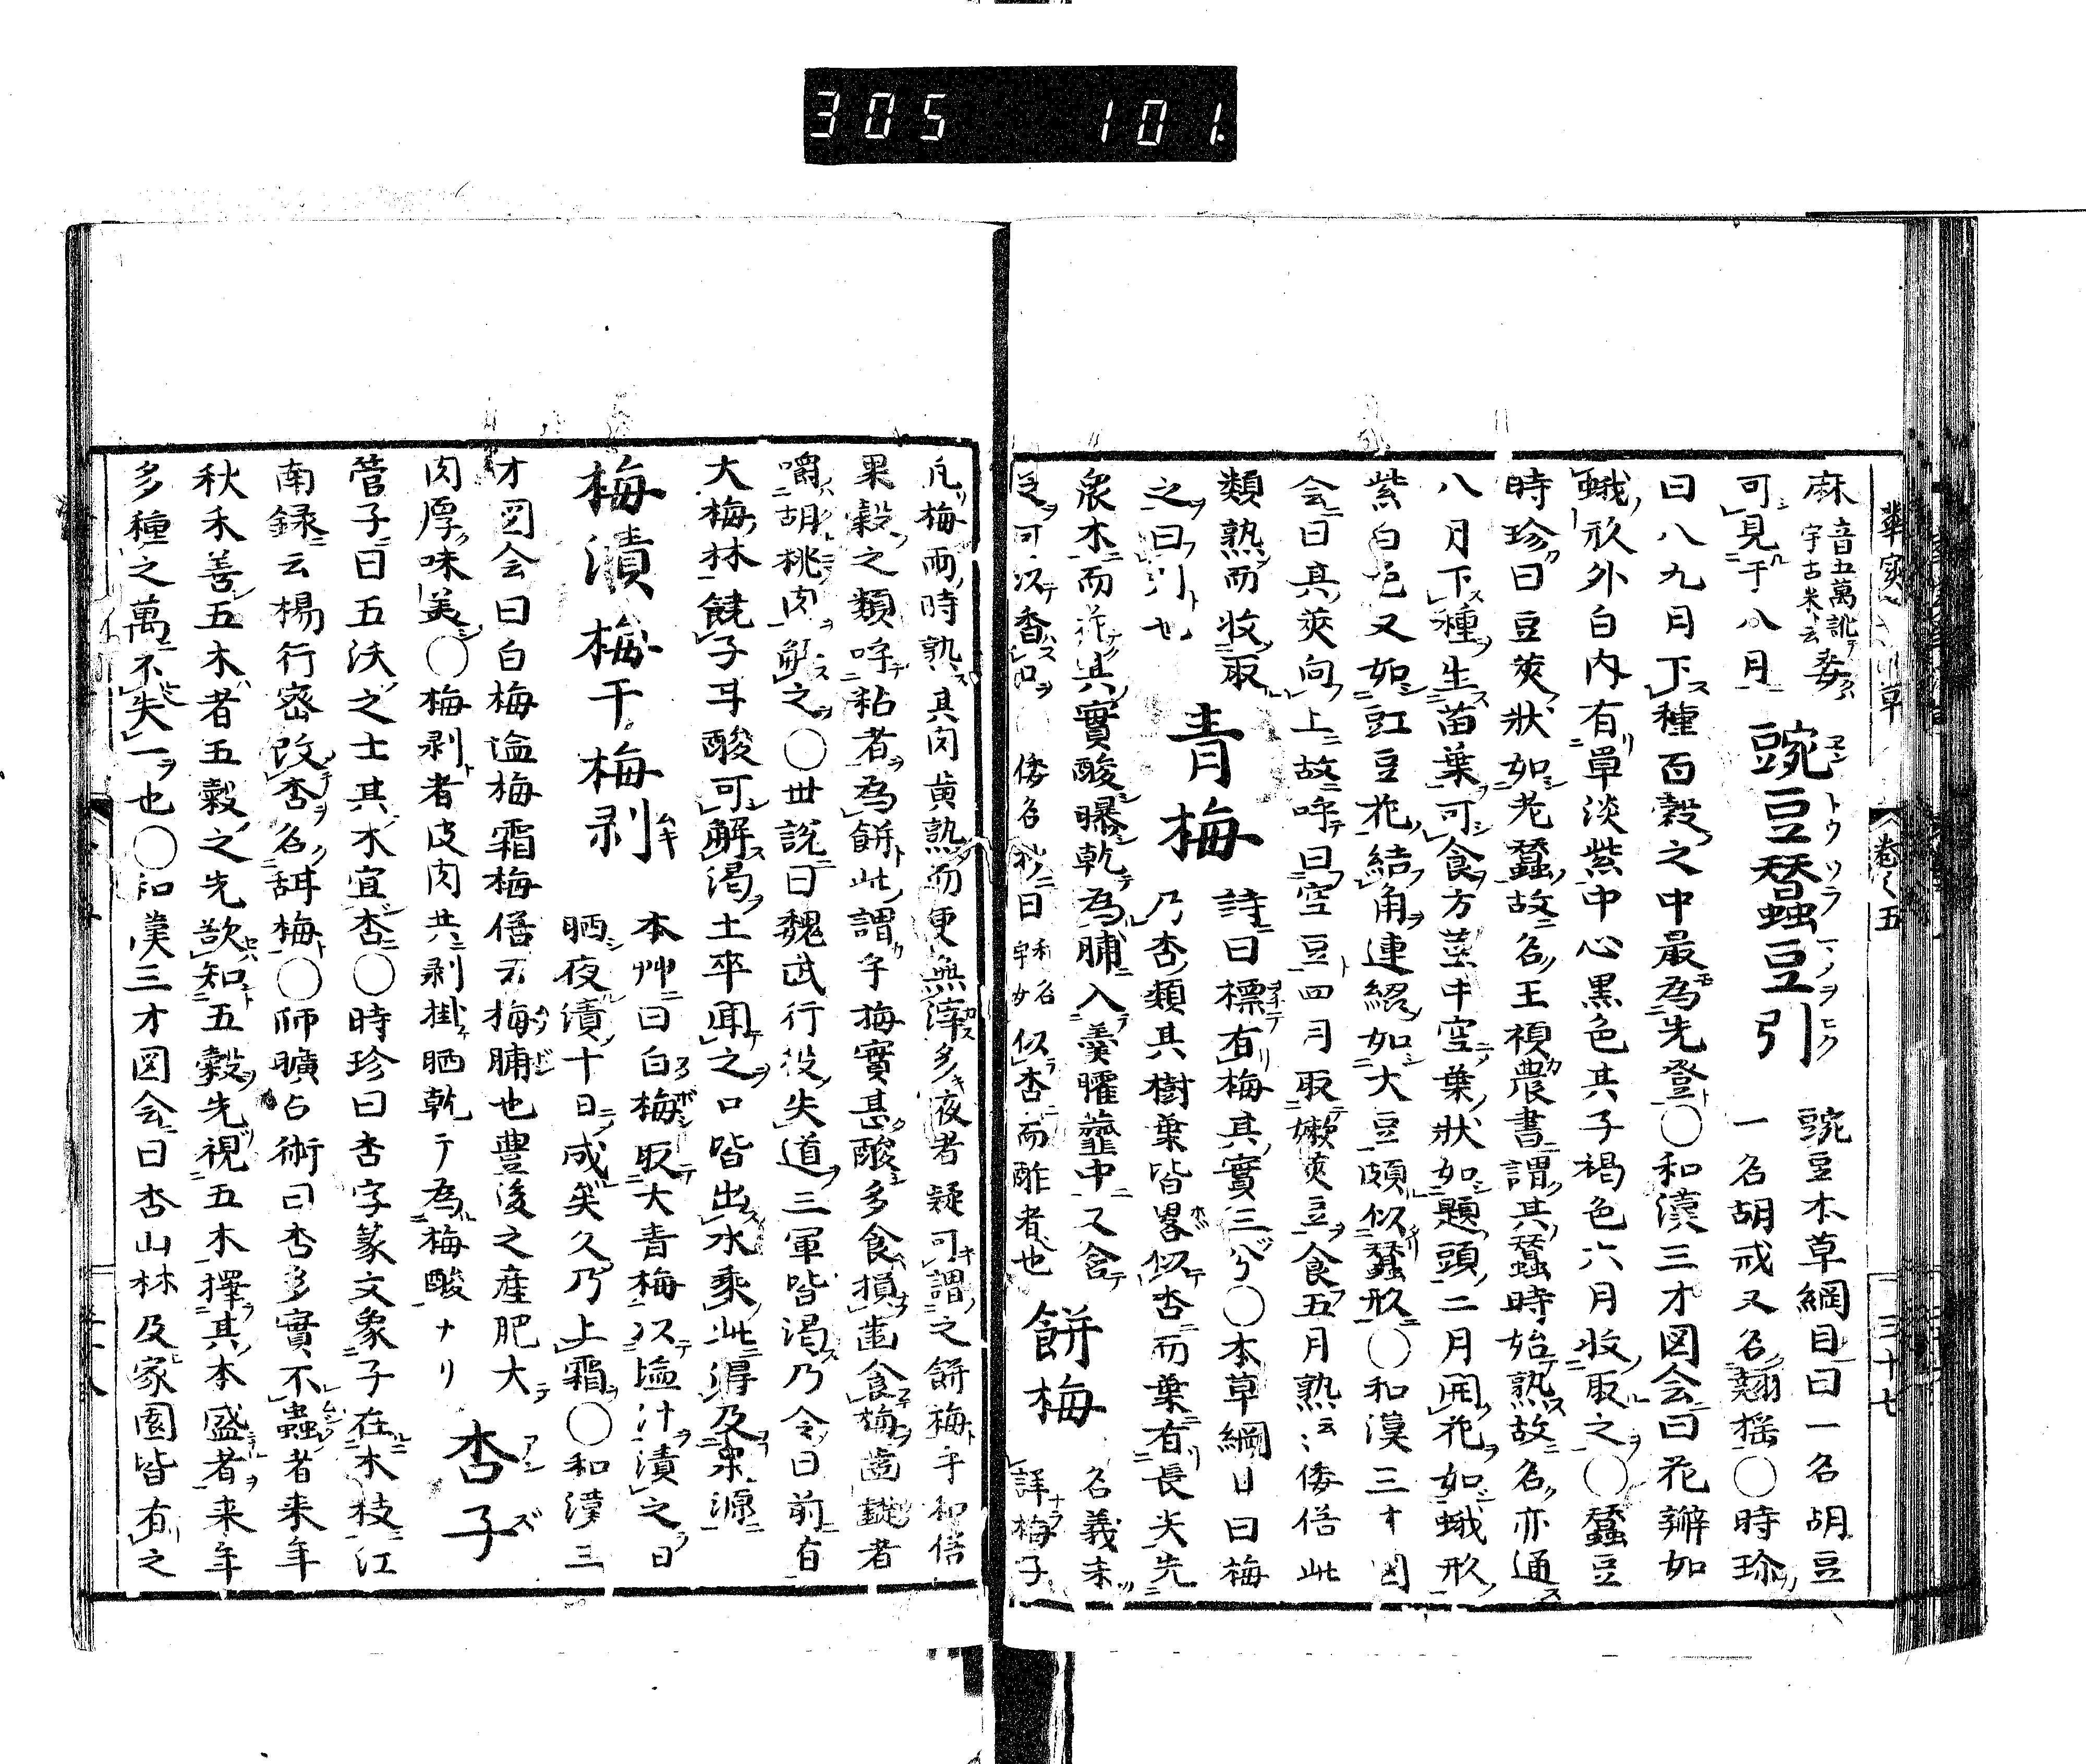 305 101.
華実 草 巻之五 三十七
麻 音五萬訛テ 宇古米ト云 委ク
可見于八月 豌豆蠶豆引 一名胡戎又名翹揺○時珍
エントウソラマメヲヒク 豌豆本草綱目曰一名胡豆
曰八九月下種百穀之中最為先登○和漢三才図会曰花瓣如
蛾形外白内有單淡紫中心黒色其子褐色六月收取之○蠶豆
時珍曰豆莢狀如老蠶故名王禎農書謂其蠶時始熟故名亦通
八月下種生苗葉可食方茎中空葉狀如題頭二月開花如蛾形
紫白色又如豇豆花結角連綴如大豆頗似蠶形○和漢三才図
会曰其莢向上故呼曰空豆四月取嫩莢豆食五月熟云倭俗此
類熟而收取 青梅 詩曰標有梅其實三兮○本草綱目曰梅
之曰引也 乃杏類其樹葉皆畧似杏而葉有長尖先
衆木而花其實酸曝乾為脯入羹臛虀中又含 餅梅 名義未
之可以香口 倭名抄曰 和名 宇女 似杏而酢者也 詳梅子
凡梅雨時熟其肉黄熟而更無滓多夜者疑可謂之餅梅乎和俗
果穀之類呼粘者為餅此謂乎梅實甚酸多食損齒食梅齒䶜者
嚼胡桃肉解之○世説曰魏武行役失道三軍皆渇乃令曰前有
大梅林饒子耳酸可解渇士卒聞之口皆出水乗此得及泉源
梅漬梅干梅剥 ムキ 本艸曰白梅取大青梅以塩汁漬之日
晒夜漬十日成矣久乃上霜○和漢三
才図会曰白梅塩梅霜梅俗云梅脯也豊後之産肥大
肉厚味美○梅剥者皮肉共剥掛晒乾テ為梅酸ナリ 杏子 アンズ
管子曰五沃之士其木宜杏○時珍曰杏字篆文象子在木枝江
南録云楊行密改杏名甜梅○師曠占術曰杏多實不蟲者来年
秋禾善五木者五穀之先欲知五穀先視五木擇其木盛者来年
多種之萬不失一也○和漢三才図会曰杏山林及家園皆有之